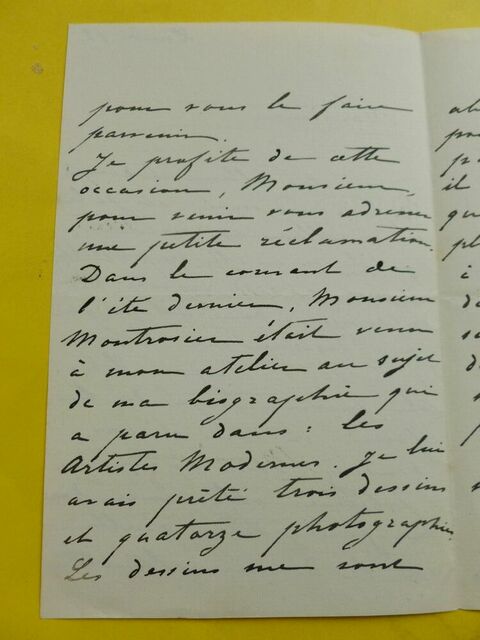 pour vous le faire
parvenir.
Je profite de cette
occasion, Monsieur,
pour venir vous adresser
une petite réclamation.
Dans le courant de
l'été dernier, Monsieur
Montrosier était venu
à mon atelier au sujet
de ma biographie qui
a paru dans : Les
Artistes Modernes. Je lui
avais prêté trois dessins
et quatorze photographies
Les dessins me sont
il
à